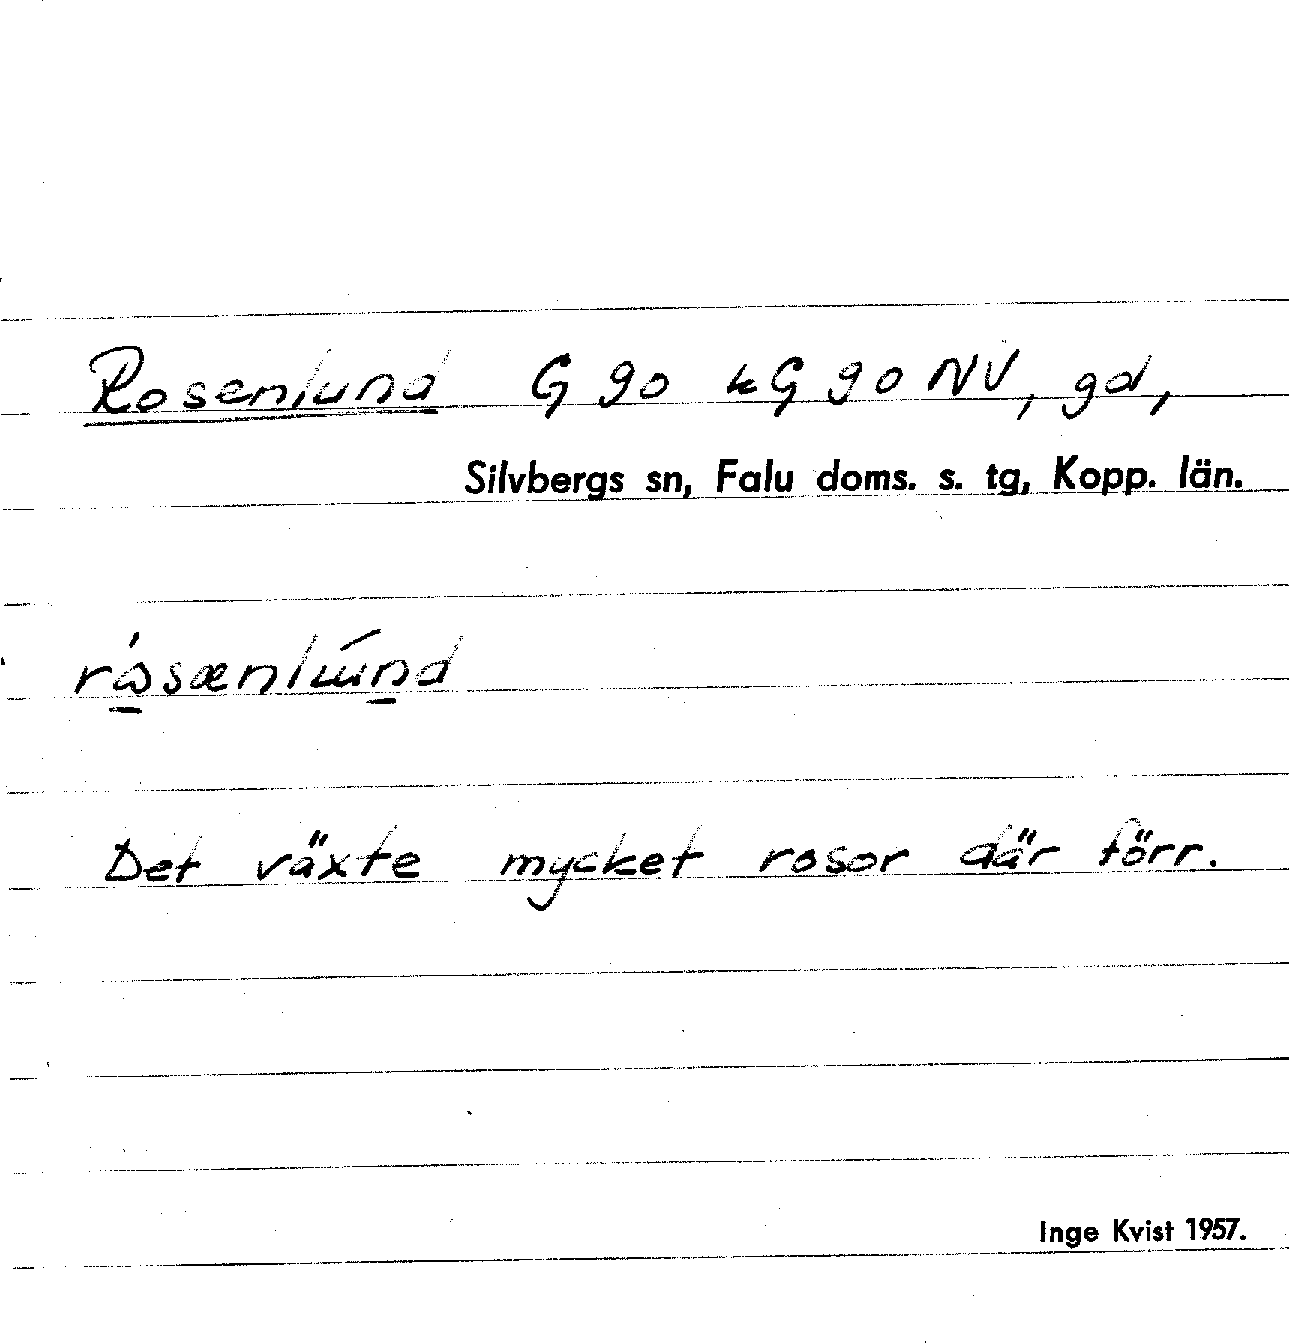 Rosenlund G 90 kG 90 NV, gd,
Silvbergs sn, Falu doms. s. tg, Kopp. län.
Det växte mycket rosor där förr.
Inge Kvist 1957.